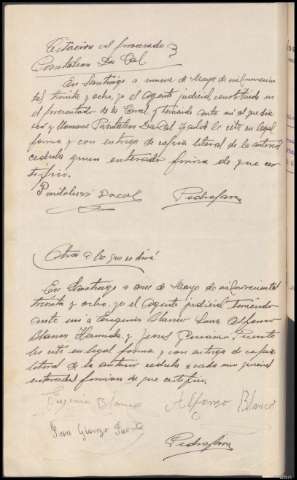 Citación al procesado
Pantaleón Da Cal
En Santiago a nueve de Mayo de mil novecien
tos treinta y ocho, yo el Agente judicial constituido en
el de la Carcel y teniendo ante mi al que dice
ser y llamarse Pantaleón Da Cal le cité en legal
forma y con entrega de copia literal de la anterior
cedula quien enterado firma de que cer
tifico.
Pantaleon Dacal
Otra a lo que se dirá
En Santiago a de Mayo de mil novecientos
treinta y ocho, yo el Agente judicial teniendo
ante mi a Eugenio Blanco Alfonso
Blanco y Puente
les cité en legal forma y con entrega de copia
literal de la anterior cedula a cada uno quienes
enterados firman de que certifico.
Eugenio Blanco Alfonso Blanco
Puente